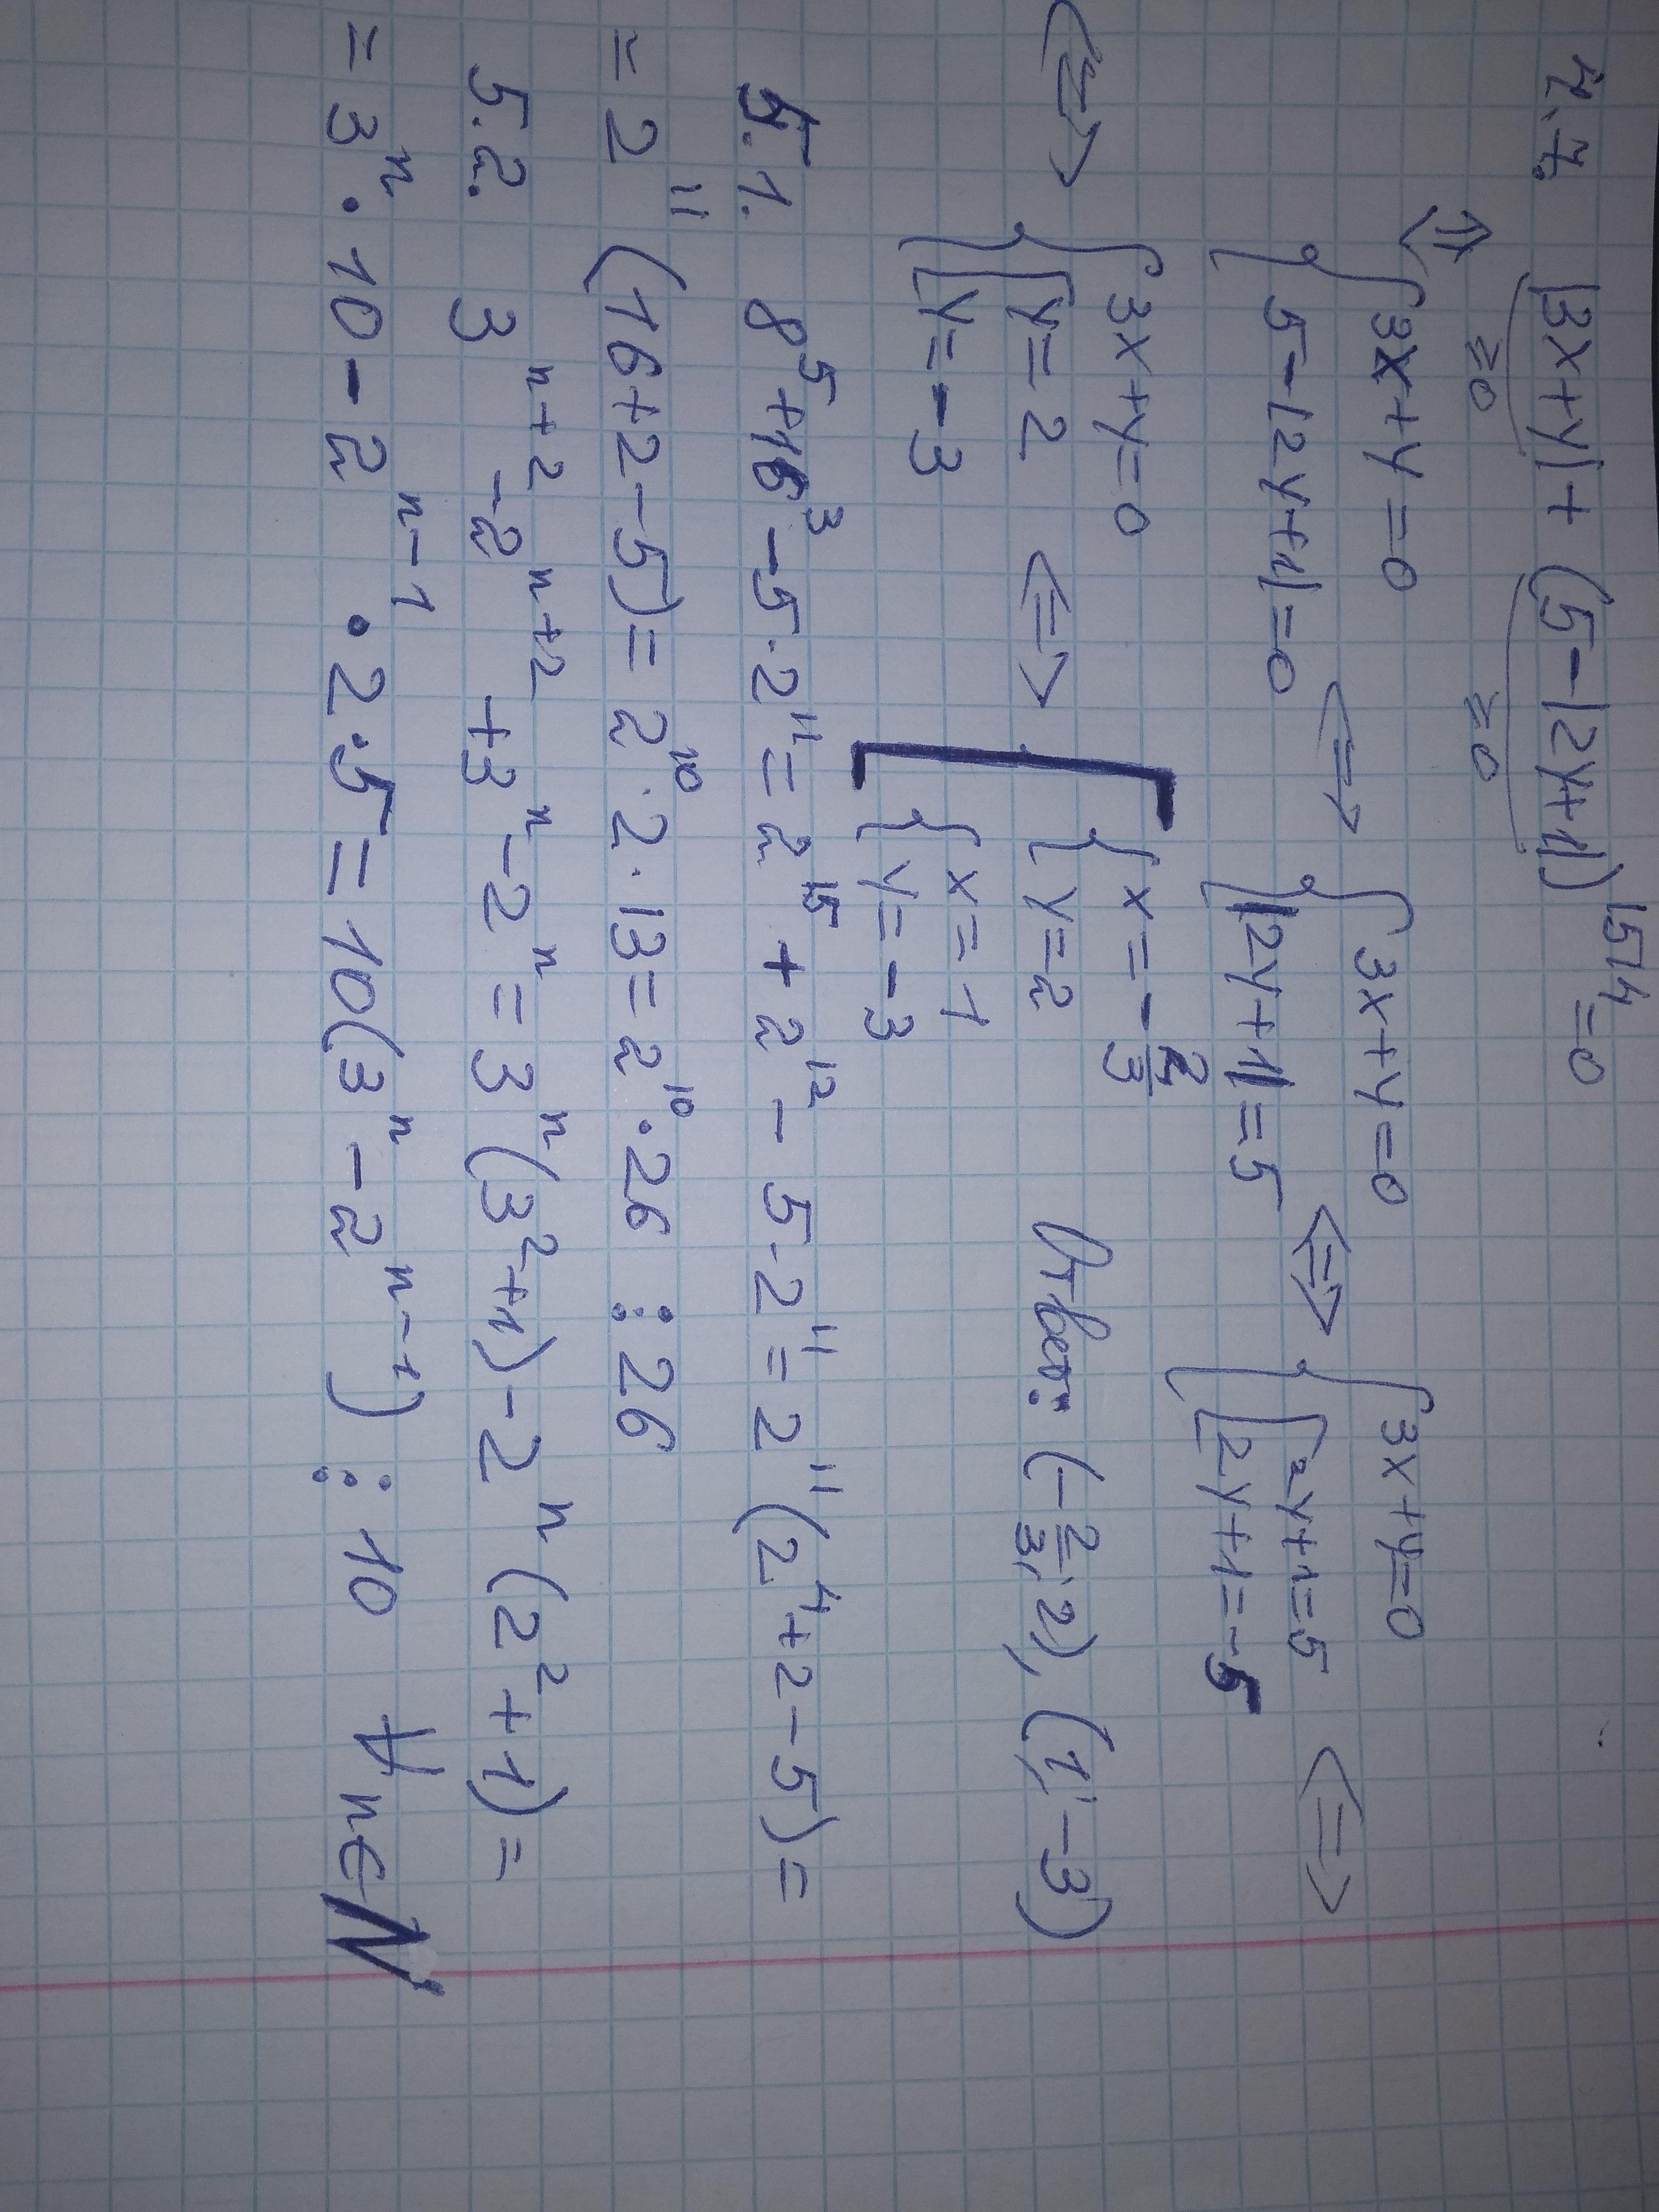 4.7. |3x+y| + (5-|2y+1|)¹⁵¹⁴ = 0
≥0 ≥0
⇔ { 3x+y=0
5-|2y+1|=0 ⇔ { 3x+y=0
|2y+1|=5 ⇔ { 3x+y=0
[ 2y+1=5
2y+1=-5 ⇔
⇔ { 3x+y=0
[ y=2
y=-3 ⇔ [ { x=-2/3
y=2
{ x=1
y=-3
Ответ: (-2/3; 2), (1; -3)
5.1. 8⁵+16³-5·2¹¹=2¹⁵+2¹²-5·2¹¹=2¹¹(2⁴+2-5)=
=2¹¹(16+2-5)=2¹⁰·2·13=2¹⁰·26⋮26
5.2. 3ⁿ⁺²-2ⁿ⁺²+3ⁿ-2ⁿ=3ⁿ(3²+1)-2ⁿ(2²+1)=
=3ⁿ·10-2ⁿ⁻¹·2·5=10(3ⁿ-2ⁿ⁻¹)⋮10 ∀n∈N